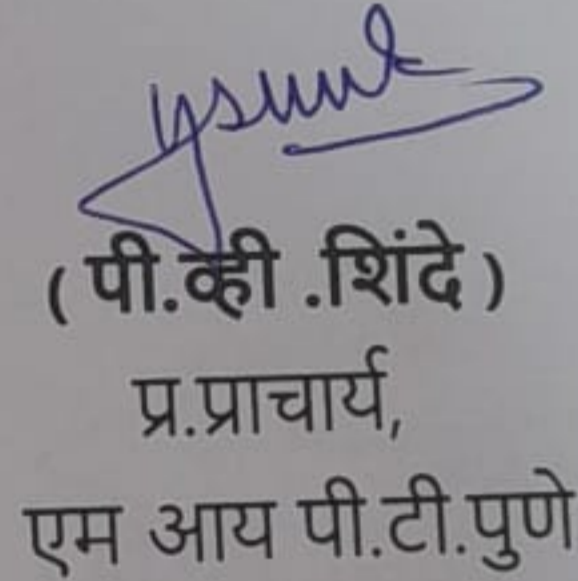 ( पी.व्ही .शिंदे )
प्र.प्राचार्य,
एम आय पी.टी.पुणे